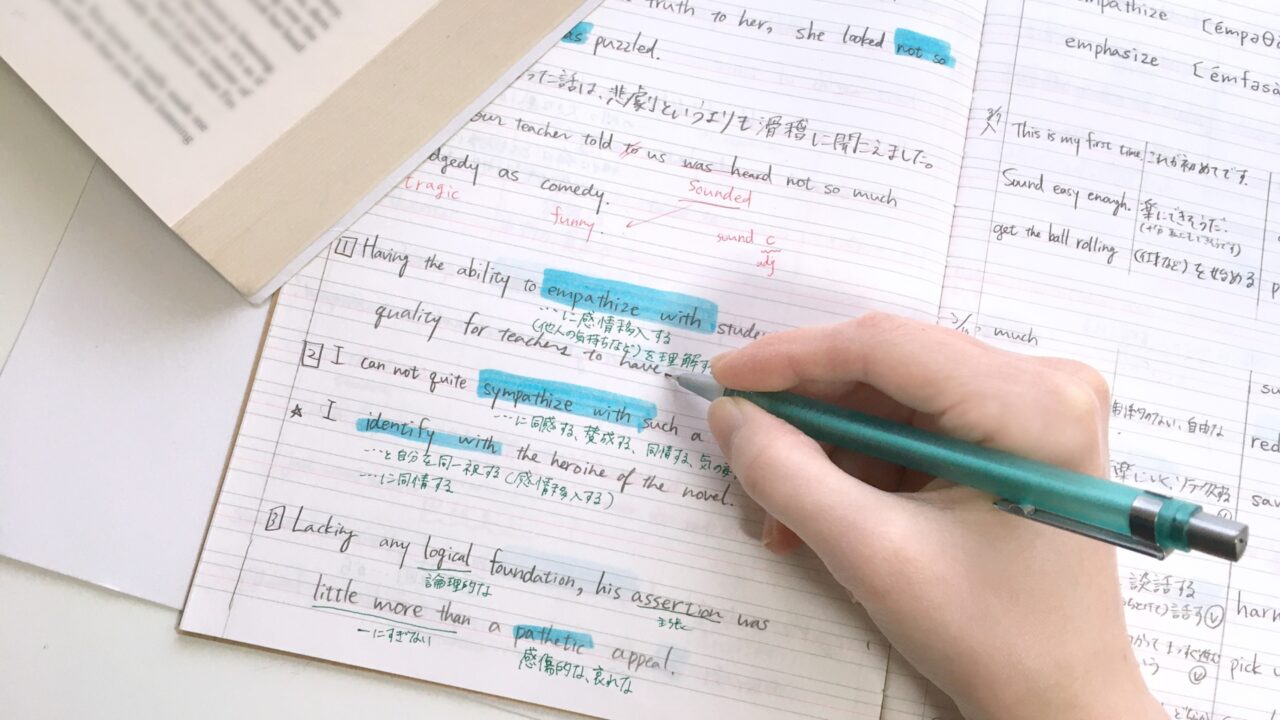 truth to her, she looked not so
as puzzled.
った話は、悲劇というよりも滑稽に聞こえました。
our teacher told to us was heard not so much
dgedy as comedy.
Sounded
tragic
funny.
sound C
adj
1 Having the ability to empathize with
…に感情移入する
(他人の気持ちなど)を理解す
quality for teachers to have
2 I can not quite sympathize with such a
…に同感する、賛成する、同情する、気の
★ I identify with the heroine of the novel.
…と自分を同一視する(感情移入する)
…に同情する
3 Lacking any logical foundation, his assertion was
論理的な
主張
little more than a pathetic appeal.
―にすぎない
感傷的な、哀れな
mpathize [émpəθ
emphasize [émfəsə
This is my first time. これが初めてです.
Sound easy enough. 楽にできそうだ.
get the ball rolling (仕事など)を始める
much
自由な
談話する
話る
harm
pick